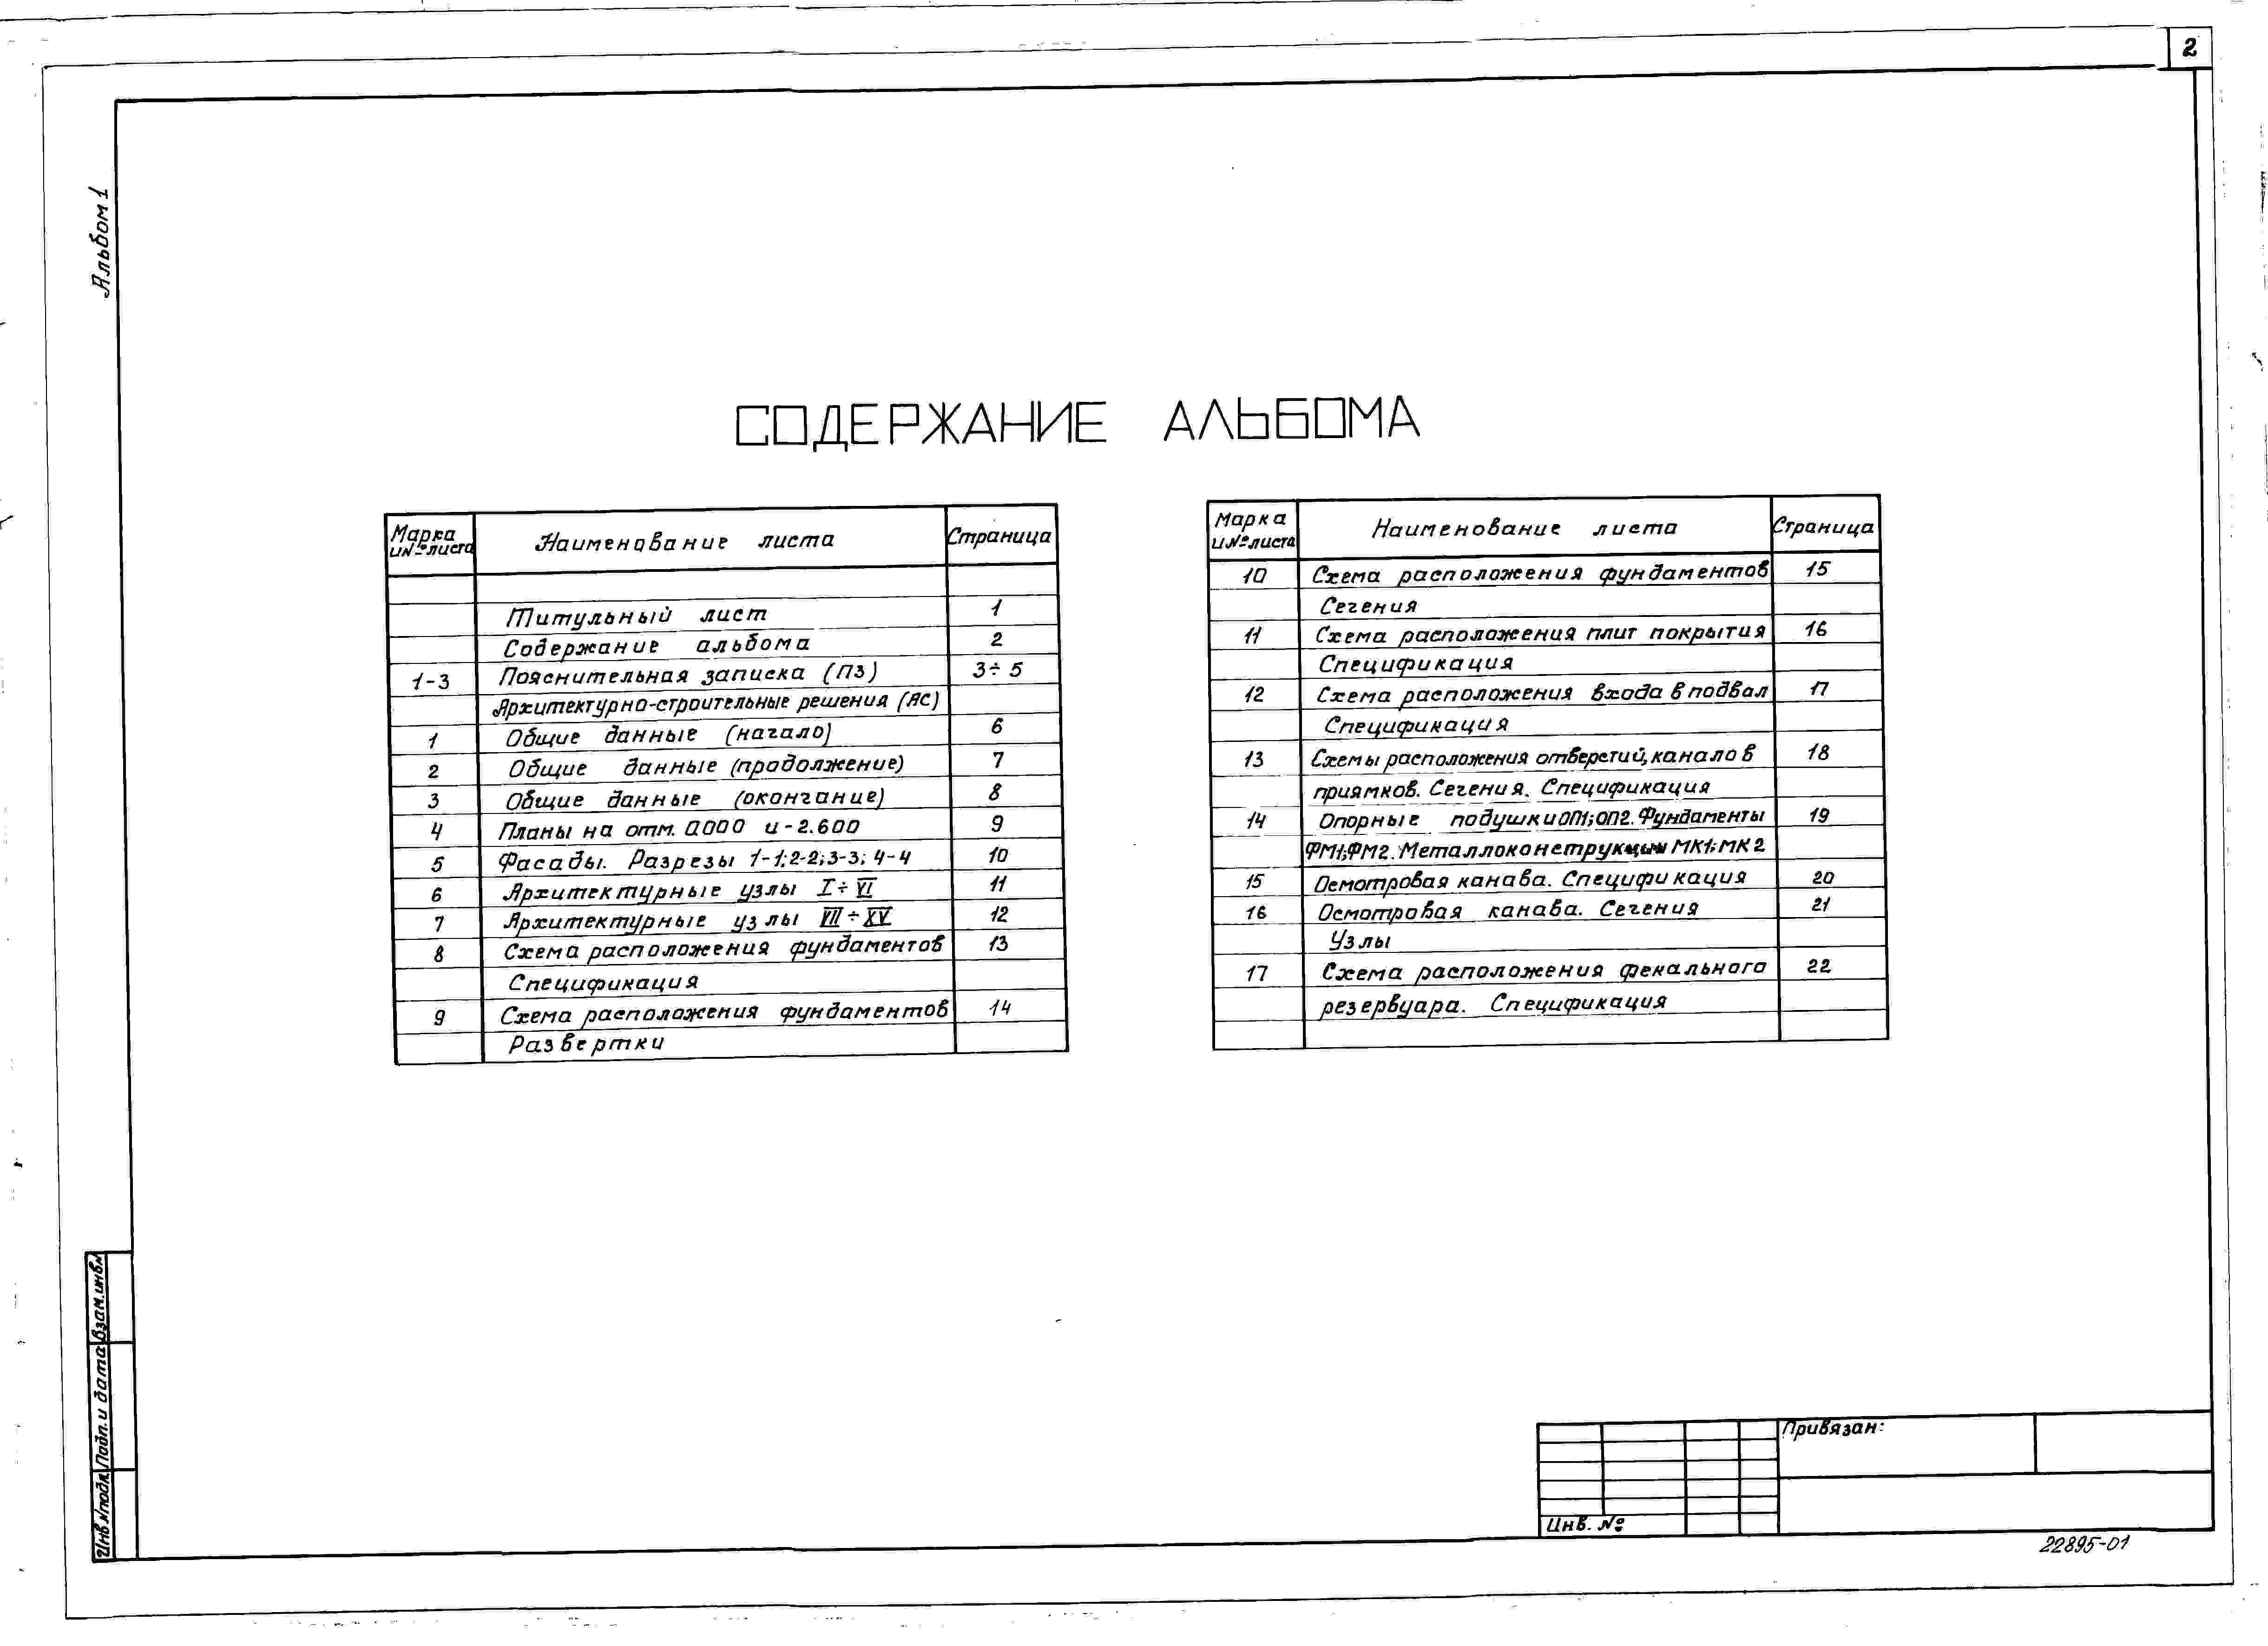 2
Альбом 1
СОДЕРЖАНИЕ АЛЬБОМА
Марка и № листа | Наименование листа | Страница
Титульный лист | 1
Содержание альбома | 2
1-3 | Пояснительная записка (ПЗ) | 3÷5
Архитектурно-строительные решения (АС)
1 | Общие данные (начало) | 6
2 | Общие данные (продолжение) | 7
3 | Общие данные (окончание) | 8
4 | Планы на отм. 0.000 и -2.600 | 9
5 | Фасады. Разрезы 1-1; 2-2; 3-3; 4-4 | 10
6 | Архитектурные узлы I÷VI | 11
7 | Архитектурные узлы VII÷XV | 12
8 | Схема расположения фундаментов | 13
Спецификация
9 | Схема расположения фундаментов | 14
Развертки
Марка и № листа | Наименование листа | Страница
10 | Схема расположения фундаментов | 15
Сечения
11 | Схема расположения плит покрытия | 16
Спецификация
12 | Схема расположения входа в подвал | 17
Спецификация
13 | Схемы расположения отверстий, каналов | 18
приямков. Сечения. Спецификация
14 | Опорные подушки ОП1; ОП2. Фундаменты | 19
ФМ1; ФМ2. Металлоконструкции МК1; МК2
15 | Осмотровая канава. Спецификация | 20
16 | Осмотровая канава. Сечения | 21
Узлы
17 | Схема расположения фекального | 22
резервуара. Спецификация
Взам. инв. №
Подп. и дата
Инв. № подл.
Привязан:
Инв. №
22895-01